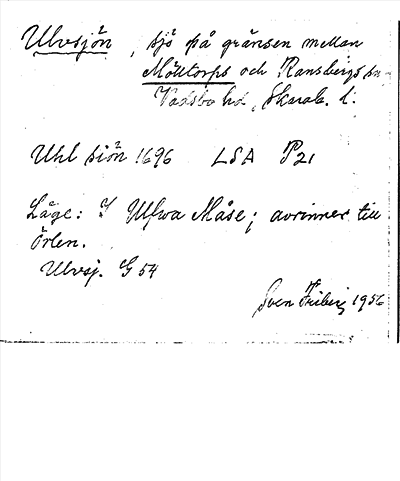 Ulvsjön, sjö på gränsen mellan
Mölltorps och Ransbergs sn
Vadsbo hd, Skarab. l.
Uhl siön 1696 LSA P21
Läge: I Ulfwa Måse; avrinner till
Örlen.
Ulvsj. G 54
Sven Friberg 1956